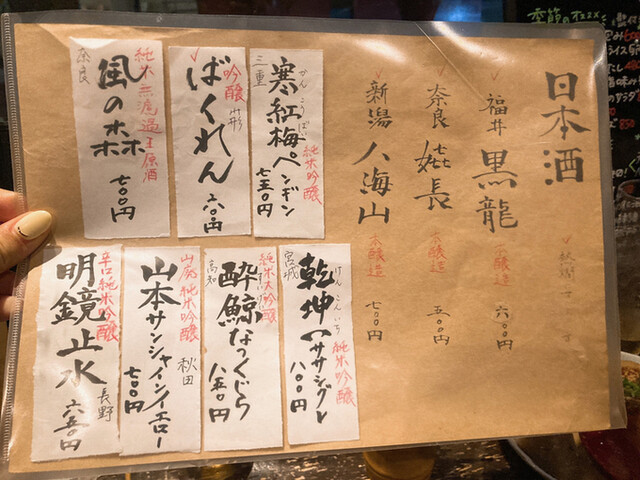 日本酒
福井 黒龍 本醸造 六〇〇円
奈良 本醸造 五〇〇円
新潟 八海山 本醸造 七〇〇円
三重 寒紅梅ペンギン 純米吟醸 七五〇円
かんこうばい
吟醸 山形
ばくれん
純米無濾過生原酒
奈良
風の森 七〇〇円
宮城
けんこんいち
乾坤一ササシグレ 純米吟醸 八〇〇円
純米大吟醸
高知
酔鯨なつくじら 八五〇円
山廃純米吟醸 秋田
山本サンシャインイエロー 七〇〇円
辛口純米吟醸 長野
明鏡止水 六五〇円
季節のオススメ